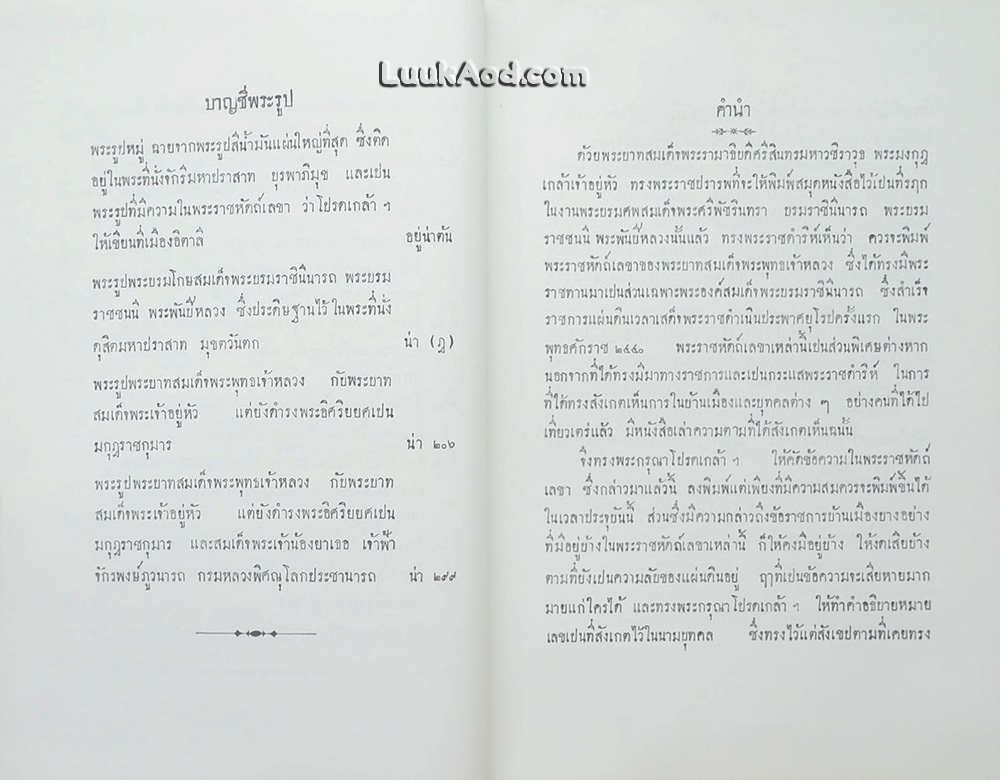 LuukAod.com
บาญชีพระรูป
พระรูปหมู่ ฉายจากพระรูปสีน้ำมันแผ่นใหญ่ที่สุด ซึ่งติด
อยู่ในพระที่นั่งจักรีมหาปราสาท บุรพาภิมุข และเปน
พระรูปที่มีความในพระราชหัดถ์เลขา ว่าโปรดเกล้า ฯ
ให้เขียนที่เมืองอิตาลี อยู่น่าต้น
พระรูปพระบรมโกษสมเด็จพระบรมราชินีนารถ พระบรม
ราชชนนี พระพันปีหลวง ซึ่งประดิษฐานไว้ ในพระที่นั่ง
ดุสิตมหาปราสาท มุขตวันตก น่า (ฎ)
พระรูปพระบาทสมเด็จพระพุทธเจ้าหลวง กับพระบาท
สมเด็จพระเจ้าอยู่หัว แต่ยังดำรงพระอิศริยยศเปน
มกุฎราชกุมาร น่า ๒๐๖
พระรูปพระบาทสมเด็จพระพุทธเจ้าหลวง กับพระบาท
สมเด็จพระเจ้าอยู่หัว แต่ยังดำรงพระอิศริยยศเปน
มกุฎราชกุมาร และสมเด็จพระเจ้าน้องยาเธอ เจ้าฟ้า
จักรพงษ์ภูวนารถ กรมหลวงพิศณุโลกประชานารถ น่า ๒๙๙
คำนำ
ด้วยพระบาทสมเด็จพระรามาธิบดีศรีสินทรมหาวชิราวุธ พระมงกุฎ
เกล้าเจ้าอยู่หัว ทรงพระราชปรารพที่จะให้พิมพ์สมุดหนังสือไว้เปนที่รฦก
ในงานพระบรมศพสมเด็จพระศรีพัชรินทรา บรมราชินีนารถ พระบรม
ราชชนนี พระพันปีหลวงนั้นแล้ว ทรงพระราชดำริห์เห็นว่า ควรจะพิมพ์
พระราชหัดถ์เลขาของพระบาทสมเด็จพระพุทธเจ้าหลวง ซึ่งได้ทรงมีพระ
ราชทานมาเปนส่วนเฉพาะพระองค์สมเด็จพระบรมราชินีนารถ ซึ่งสำเร็จ
ราชการแผ่นดินเวลาเสด็จพระราชดำเนินประพาศยุโรปครั้งแรก ในพระ
พุทธศักราช ๒๔๔๐ พระราชหัดถ์เลขาเหล่านี้เปนส่วนพิเศษต่างหาก
นอกจากที่ได้ทรงมีมาทางราชการและเปนกระแสพระราชดำริห์ ในการ
ที่ได้ทรงสังเกตเห็นการในบ้านเมืองและบุทคลต่าง ๆ อย่างคนที่ได้ไป
เที่ยวเตร่แล้ว มีหนังสือเล่าความตามที่ได้สังเกตเห็นฉนั้น
จึงทรงพระกรุณาโปรดเกล้า ฯ ให้คัดข้อความในพระราชหัดถ์
เลขา ซึ่งกล่าวมาแล้วนี้ ลงพิมพ์แต่เพียงที่มีความสมควรจะพิมพ์ขึ้นได้
ในเวลาประจุบันนี้ ส่วนซึ่งมีความกล่าวถึงข้อราชการบ้านเมืองบางอย่าง
ที่มีอยู่บ้างในพระราชหัดถ์เลขาเหล่านี้ ก็ให้คงมีอยู่บ้าง ให้งดเสียบ้าง
ตามที่ยังเปนความลับของแผ่นดินอยู่ ฤๅที่เปนข้อความจะเสียหายมาก
มายแก่ใครได้ และทรงพระกรุณาโปรดเกล้า ฯ ให้ทำคำอธิบายหมาย
เลขเปนที่สังเกตไว้ในนามบุทคล ซึ่งทรงไว้แต่สังเขปตามที่เคยทรง